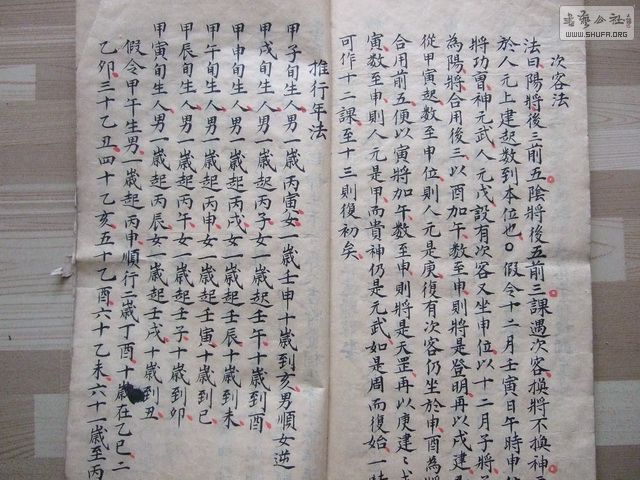 次客法
法曰陽將後三前五陰將後五前三課遇次客換將不換神
於人元上建起數到本位也〇假令十二月壬寅日午時申位
將功曹神元武人元戊設有次客又坐申位以十二月子將
為陽將合用後三以酉加午數至申則將是登明再以戌建
從甲寅起數至申位則人元是庚復有次客仍坐於申酉為將
合用前五便以寅將加午數至申則將是天罡再以庚建
寅數至申則人元是甲而貴神仍是元武如是周而復始一時
可作十二課至十三則復初矣
推行年法
甲子旬生人男一歲丙寅女一歲壬申十歲到亥男順女逆
甲戌旬生人男一歲起丙子女一歲起壬午十歲到酉
甲申旬生人男一歲起丙戌女一歲起壬辰十歲到未
甲午旬生人男一歲起丙申女一歲起壬寅十歲到巳
甲辰旬生人男一歲起丙午女一歲起壬子十歲到卯
甲寅旬生人男一歲起丙辰女一歲起壬戌十歲到丑
假令甲午生男一歲起丙申順行二歲丁酉十歲在乙巳二
乙卯三十乙丑四十乙亥五十乙酉六十乙未六十一歲至丙
書藝公社
WWW.SHUFA.ORG